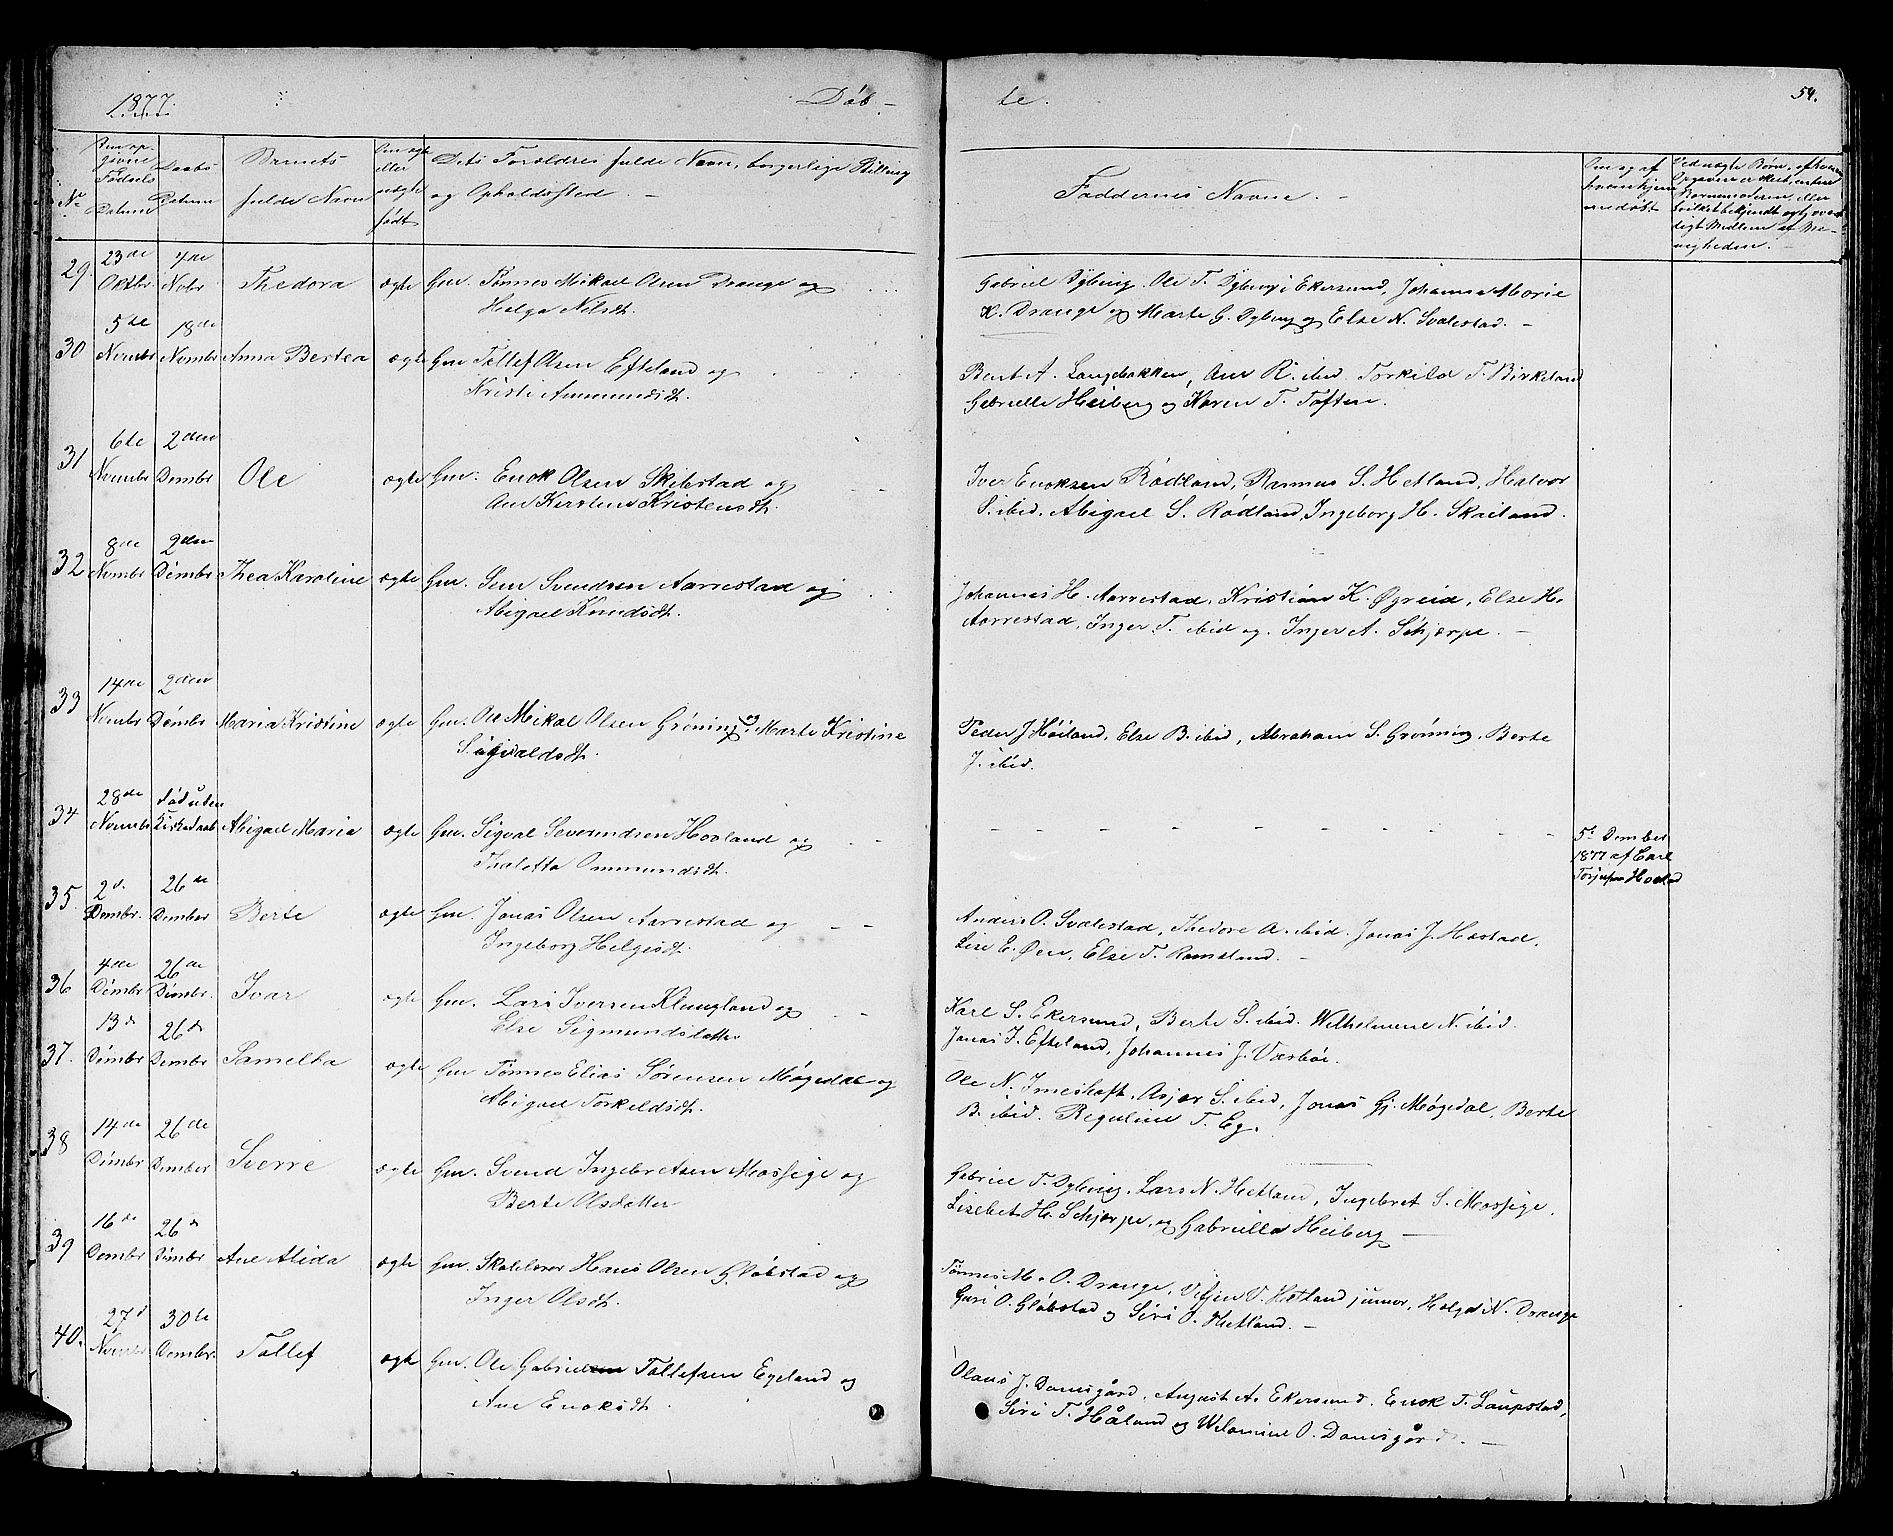 1877.
Døb-
te.
54.
No
Den op-
givne
Fødsels
Datum
Daabs
Datum
Barnets
fulde Navn
Om ægte
eller
uægte
født
Dets Forældres fulde Navn, borgerlige Stilling
og Opholdssted. —
Faddernes Navne. —
29. 23de Oktbr. 4de Nobr. Thedora ægte Gm. Tønnes Mikael Olsen Drange og
Helga Nilsdt.
Gabriel Dybing. Ole T. Dybing i Ekersund, Johanna Marie
K. Drange og Marte G. Dybing og Else N. Svalestad. —
30 5te Novmbr 18de Novmbr Anna Bertea ægte Gm Tollef Olsen Efteland og
Kristi Ammundsdt.
Bent A. Langbakken, Ane R. ibid. Torkild T. Birkeland
Gabrielle Heiberg og Karen T. Toften.
31 6te Novmbr 2den Dembr Ole ægte Gm. Enok Olsen Skibstad og
Ane Kirstine Kristensdt.
Iver Enoksen Rødland, Rasmus S. Hetland, Halvor
S. ibid. Abigael S. Rødland, Ingeborg H. Skailand.
32 8de Novmbr 2den Dembr Thea Karoline ægte Gm. Svendsen Aarrestad og
Abigael Knudsdt.
Johannes H. Aarrestad, Kristian K. Øgreid, Else H.
Aarrestad, Inger T. ibid og Inger A. Schjerpe. —
33 14de Novmbr 2den Dembr Maria Kristine ægte Gm. Ole Mikal Olsen Grøning og Marte Kristine
Sigvaldsdt.
Peder J Høiland, Else B. ibid, Abraham S. Grønning, Berte
J. ibid.
34 28de Novmbr Død uden Kirkedaab Abigael Maria ægte Gm. Sigval Severindsen Hovland og
Thaletta Ommundsdt.
5te Dember
1877 af Carl
35. 2d. Dembr. 26de Dember Berte ægte Gm. Jonas Olsen Aarrestad og
Ingeborg Helgesdt.
Anders O. Svalestad, Thedore A. ibid. Jonas J. Hæstad.
Lise E. Øen, Else T. Ramsland. —
36 4de Dembr 26de Dembr. Ivar ægte Gm. Lars Iversen Klungland og
Else Sigmundsdatter
Karl S. Ekersund, Berte S. ibid. Wilhelmine N. ibid.
Jonas I. Efteland, Johannes J. Vasbøe.
37. 13d Dembr 26d Dembr Samelba ægte Gm Tønnes Elias Sørensen Møgedal og
Abigael Torkeldsdt.
Ole N. Imeshaft. Asjer S. ibid, Jonas Gj. Møgedal, Berte
B. ibid. Reguline T. Eg.
38 14de Dembr 26de Dember Sverre ægte Gm. Svend Ingebretsen Mossige og
Berte Olsdatter
Gabriel T. Dybing, Lars N. Hetland, Ingebret S. Mossige.
Lisebet H. Schjerpe, og Gabriella Heiberg —
39 16de Dembr 26d Dembr Ane Alida ægte Gm. Skolelærer Hans Olsen Gløbstad og
Inger Olsdt.
Tønnes M. O. Drange, V. Hetland junior, Helga N. Drange
Guri O. Gløbstad og Siri O. Hetland. —
40. 27d Novmbr 30te Dembr. Tollef ægte Gm. Ole Gabriel Tollefsen Egeland og
Ane Enoksdt.
Olaus J. Damsgård, August A. Ekersund. Enok T. Laupstad,
Siri T. Håland og Wilamine O. Damsgård. —